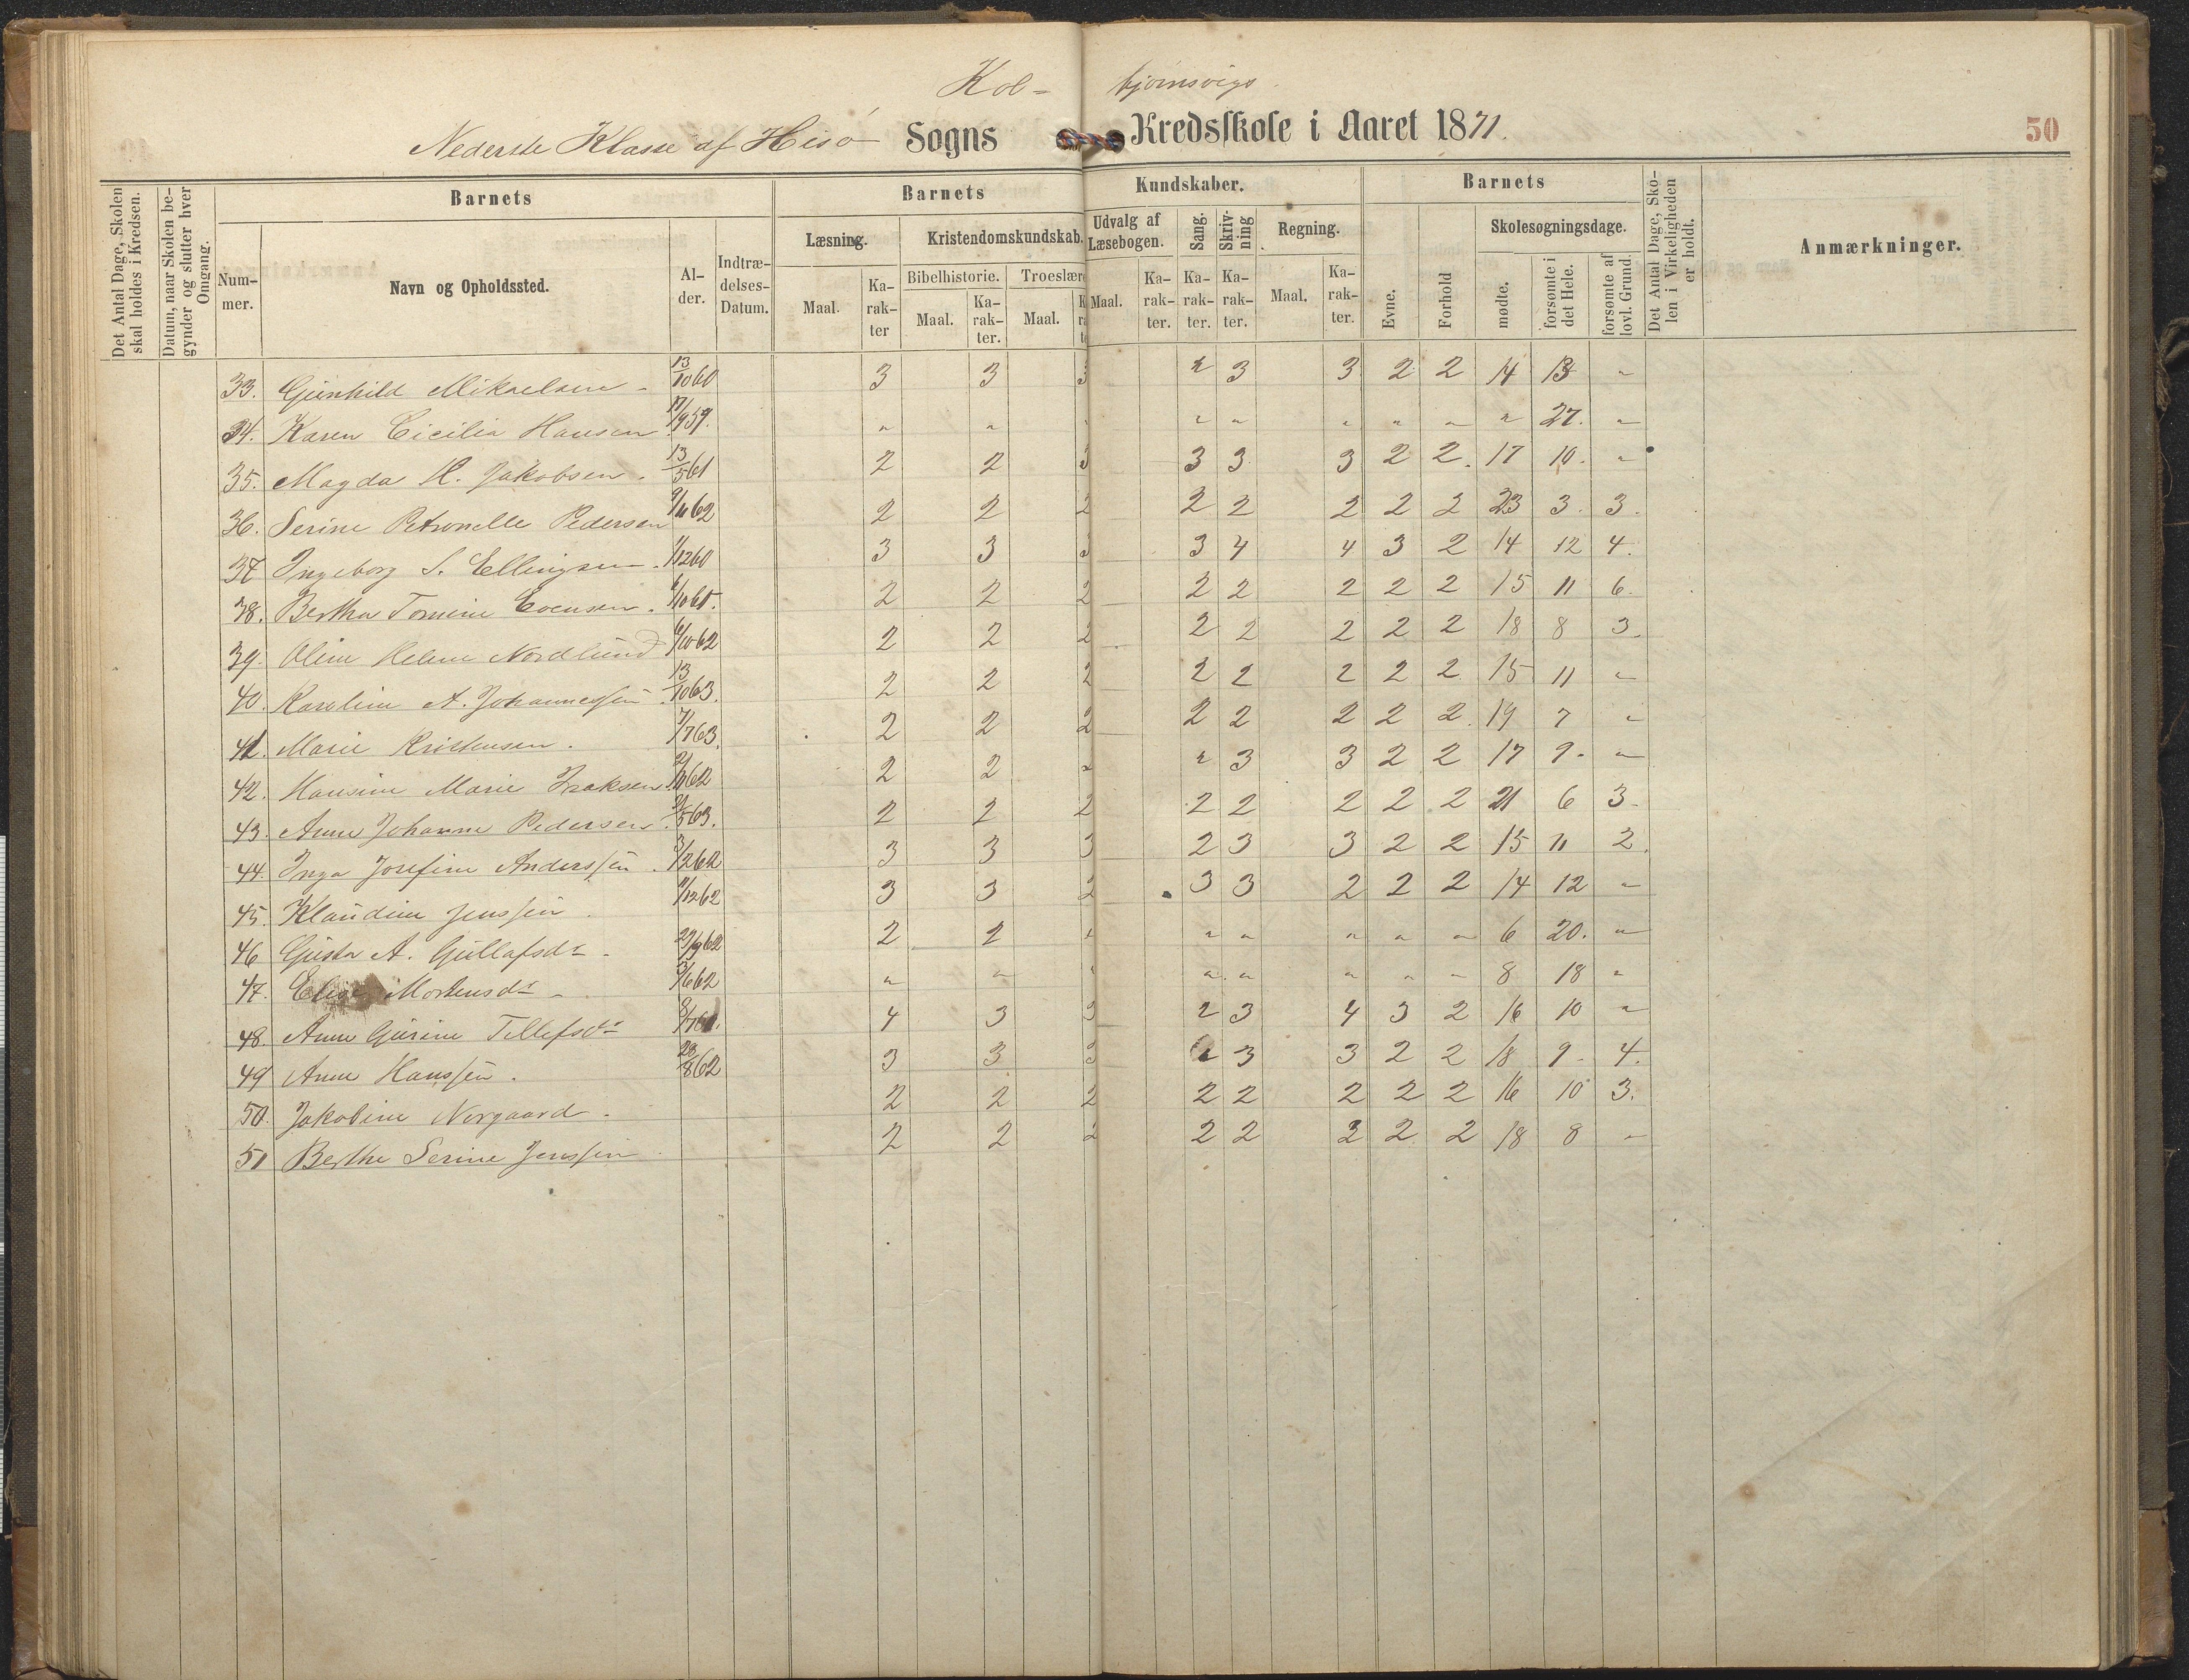 Kol- bjørnsvigs
Nederste Klasse af Hisø Sogns Kredsskole i Aaret 1871.
50
Det Antal Dage, Skolen skal holdes i Kredsen.
Datum, naar Skolen begynder og slutter hver Omgang.
Barnets
Barnets Kundskaber.
Barnets
Det Antal Dage, Skolen i Virkeligheden er holdt.
Anmærkninger.
Nummer.
Navn og Opholdssted.
Alder.
Indtrædelses-Datum.
Læsning.
Kristendomskundskab.
Udvalg af Læsebogen.
Sang.
Skrivning
Regning.
Evne.
Forhold
Skolesøgningsdage.
Bibelhistorie.
Troeslære
mødte.
forsømte i det Hele.
forsømte af lovl. Grund.
Maal. Karakter Maal. Karakter. Maal. Maal. Karakter. Karakter. Karakter. Maal. Karakter.
33. Gunhild Mikaelsen - 13/10 60 3 3 3 " 3 3 2 2 14 13 "
34. Karen Cicilia Hansen 17/9 59. " " " " " " " " " 27. "
35. Magda H. Jakobsen. 13/5 61 2 2 3 3 3 3 2 2. 17 10. "
36. Serine Petronelle Pedersen 9/11 62 2 2 2 2 2 2 2 2 23 3. 3.
37 Ingeborg S. Ellingsen. 1/12 60 3 3 3 3 4 4 3 2 14 12 4.
38. Bertha Tomine Evensen. 2 2 2 2 2 2 2 2 15 11 6.
39. Oline Helene Nordlund 6/10 62 2 2 2 2 2 2 2 2 18 8 3.
40. Karoline A. Johannessen. 13/10 63. 2 2 2 2 2 2 2 2 15 11 "
41. Marie Kristensen. 7/7 63. 2 2 2 2 2 2 2 2. 19 7 "
42. Hansine Marie Isaksen. 2/11 62 2 2 " " 3 3 2 2 17 9. "
43. Anne Johanne Pedersen. 63. 2 2 2 2 2 2 2 2 21 6 3.
44. Inga Josefine Anderssen. 3/12 62 3 3 3 2 3 3 2 2 15 11 2.
45. Klaudine Jenssen. 62 3 3 2 3 3 2 2 2 14 12 "
46 Gusta A. Gullafsdr. 27/9 62 2 2 " " " " " " 6 20. "
47. Elise Mortensdr - 3/6 62 " " " " " " " " 8 18 "
48. Anne Gurine Tellefsdr 4 3 3 2 3 4 3 2 16 10 "
49 Anne Hanssen. 28/8 62 3 3 3 3 3 2 2 18 9. 4.
50. Jakobine Norgaard. 2 2 2 2 2 2 2 2 16 10 3.
51 Berthe Serine Jenssen. 2 2 2 2 2 2 2 2 18 8 "